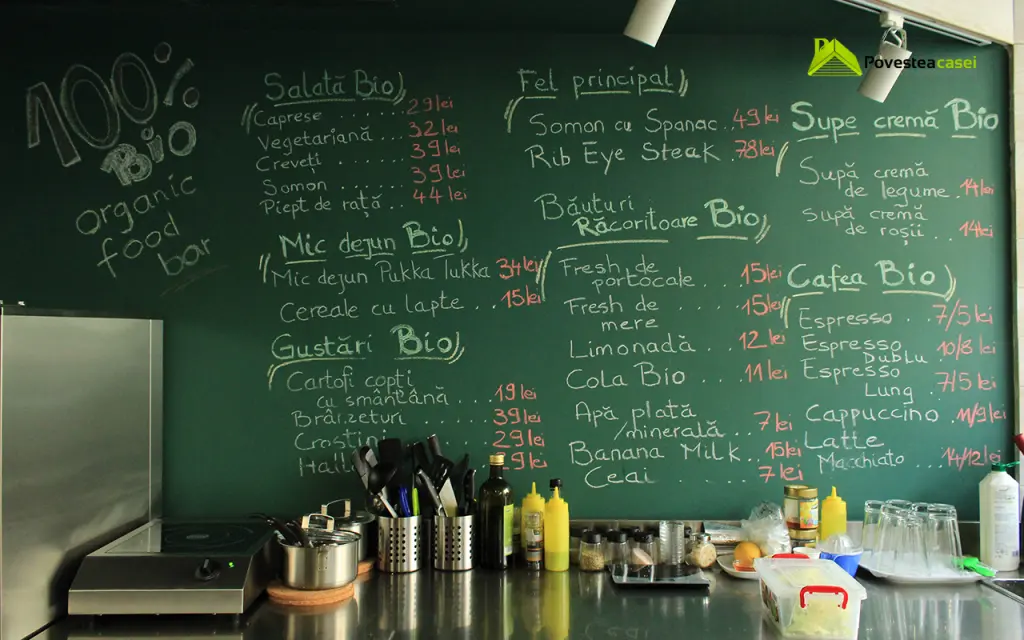 100%
Bio
organic
food
bar
Salată Bio
Caprese ...... 29 lei
Vegetariană .... 32 lei
Creveți ...... 39 lei
Somon ...... 39 lei
Piept de rață .. 44 lei
Mic dejun Bio
Mic dejun Pukka Tukka 34 lei
Cereale cu lapte ... 15 lei
Gustări Bio
Cartofi copți
cu smântână ... 19 lei
Brânzeturi ..... 39 lei
29 lei
9 lei
Fel principal
Somon cu Spanac .. 49 lei
Rib Eye Steak . 78 lei
Băuturi
Răcoritoare Bio
Fresh de
portocale ... 15 lei
Fresh de
mere ... 15 lei
Limonadă ... 12 lei
Cola Bio .... 11 lei
Apă plată
/minerală ... 7 lei
Banana Milk .. 15 lei
Ceai ........ 7 lei
Povesteacasei
Supe cremă Bio
Supă cremă
de legume . 14 lei
Supă cremă
de roșii ... 14 lei
Cafea Bio
Espresso .. 7/5 lei
Espresso
Dublu 10/8 lei
Espresso
Lung 7/5 lei
Cappuccino . 11/9 lei
Latte
Macchiato ... 14/12 lei